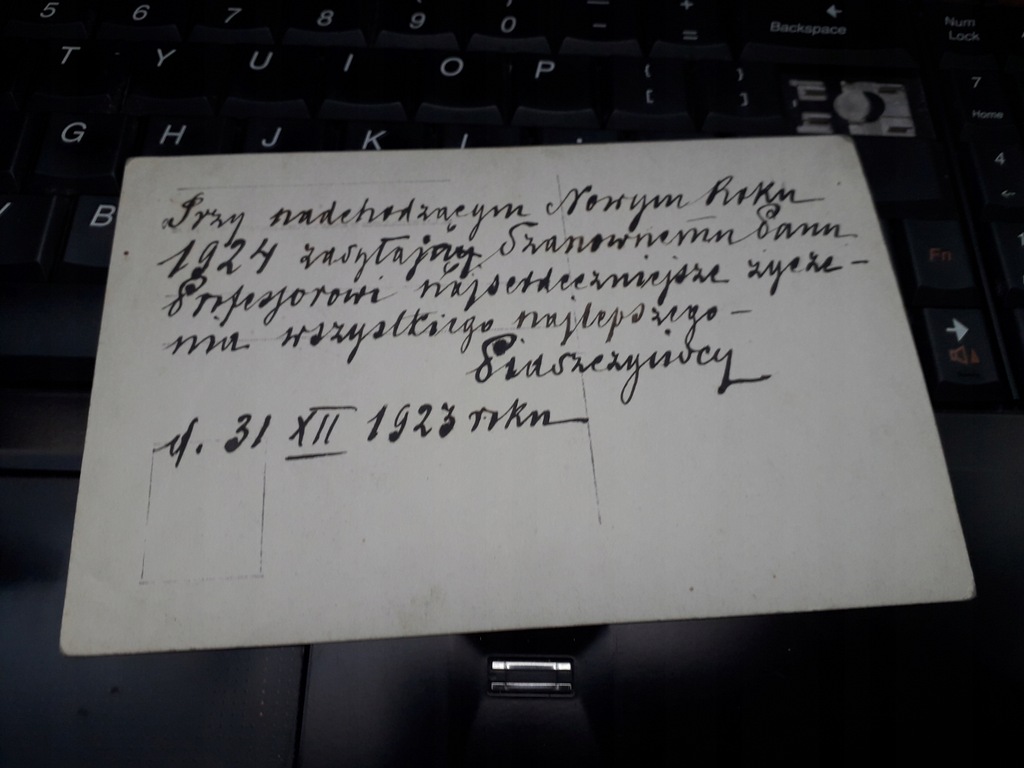 5 6 7 8 9 0 - + = Backspace Num Lock
T Y U I O P { [ } ] 7 Home
G H J K L 4
B Fn
Przy nadchodzącym Nowym Roku
1924 zasyłają Szanownemu Panu
Profesorowi najserdeczniejsze życze-
nia wszystkiego najlepszego-
Piaszczyńscy
d. 31 XII 1923 roku